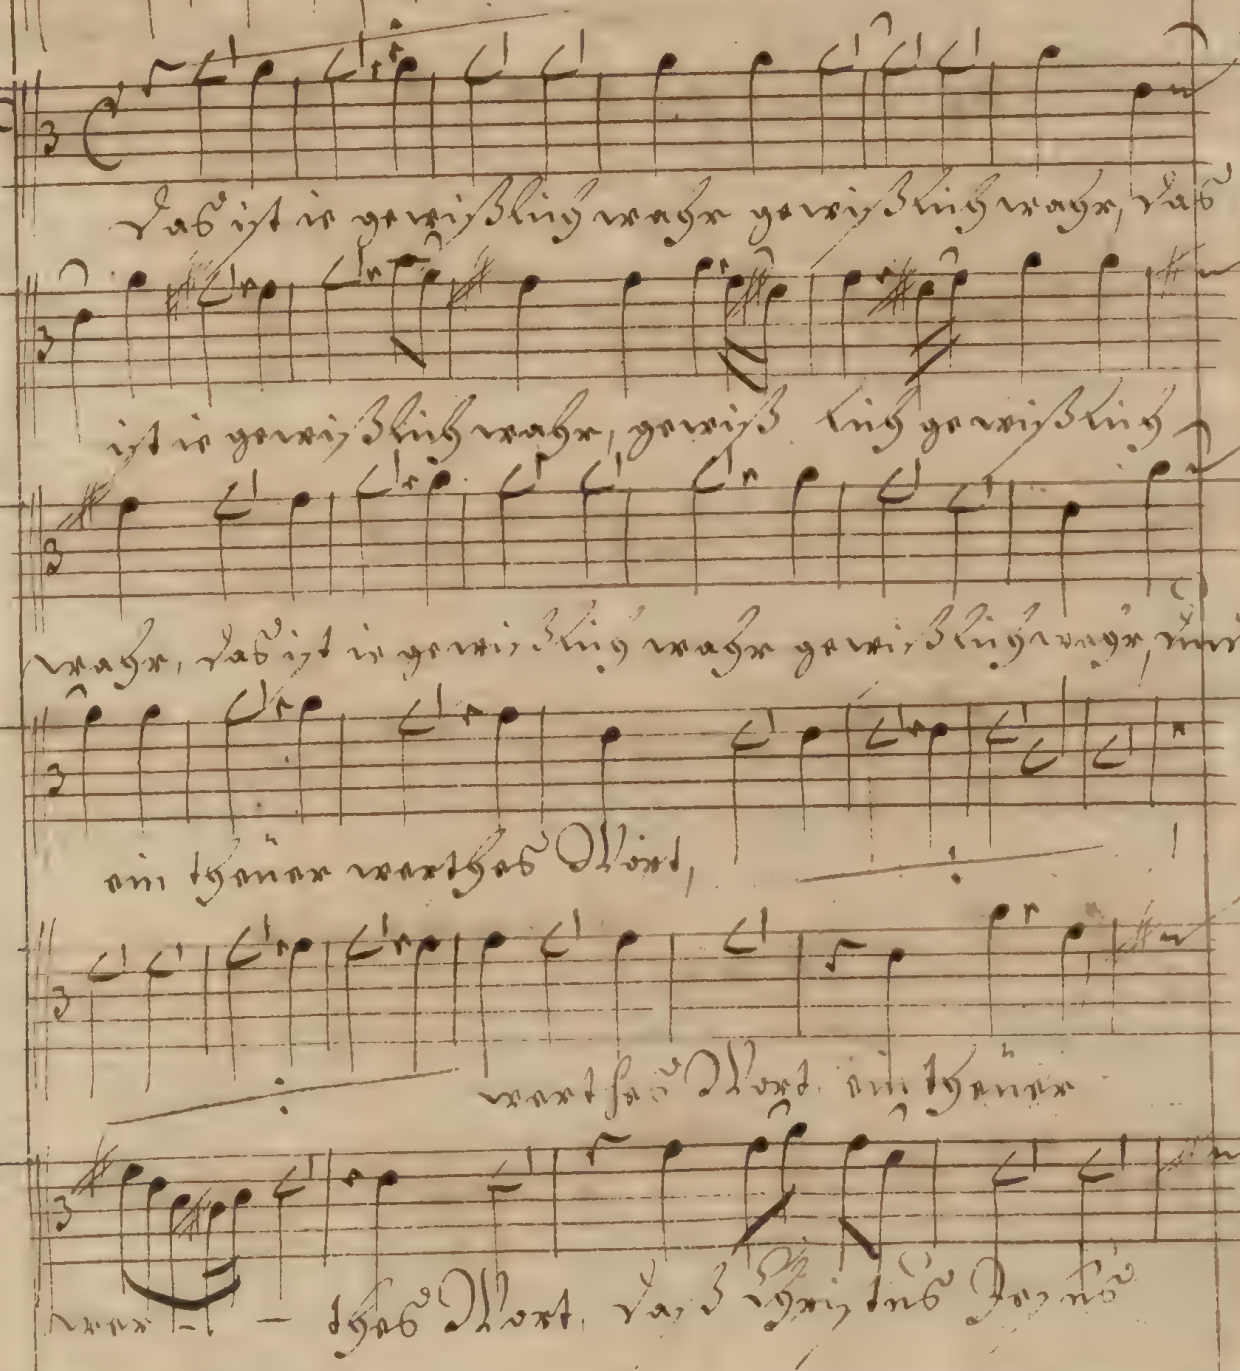 Das ist ie gewißlich wahr gewißlich wahr, das
ist ie gewißlich wahr, gewiß lich gewißlich
wahr, das ist ie gewißlich wahr gewißlich wahr, und
ein theüer werthes Wort,
werthes Wort. ein theüer
wer - - thes Wort, daß Christus Jesus